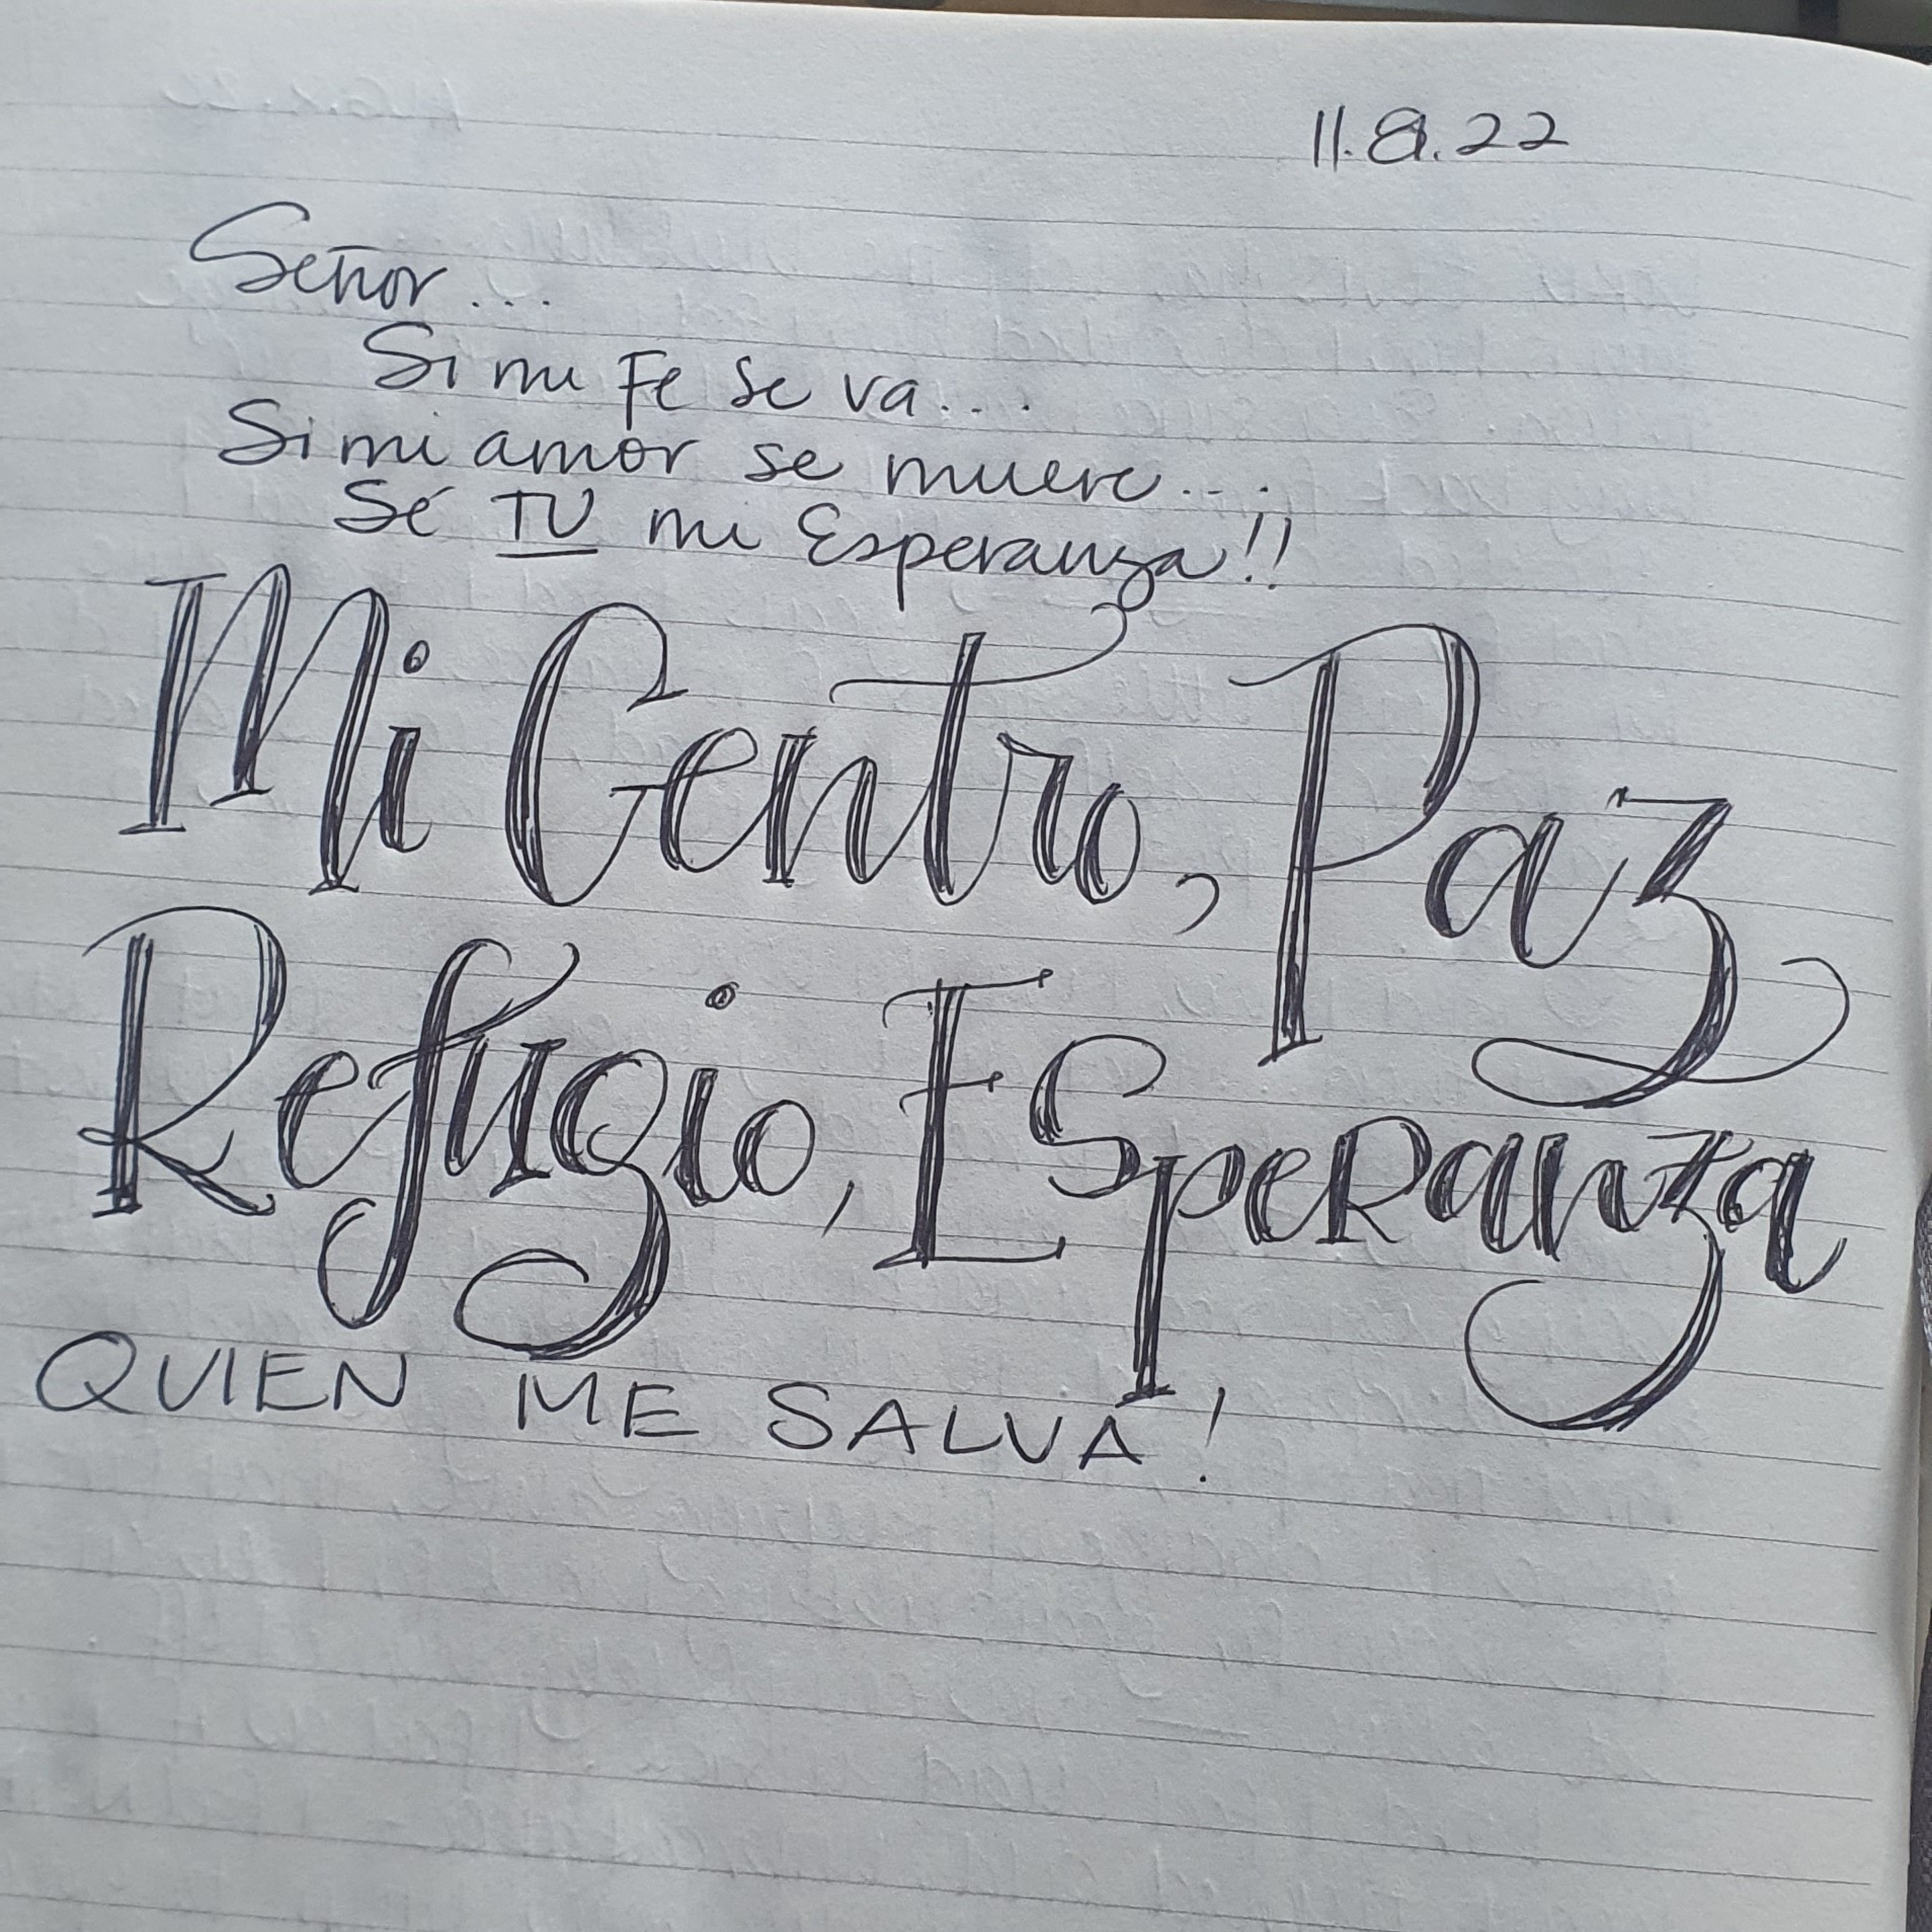 Señor...
Si mi Fe se va...
Si mi amor se muere...
Sé TU mi Esperanza!!
Mi Centro, Paz
Refugio, Esperanza
QUIEN ME SALVA!